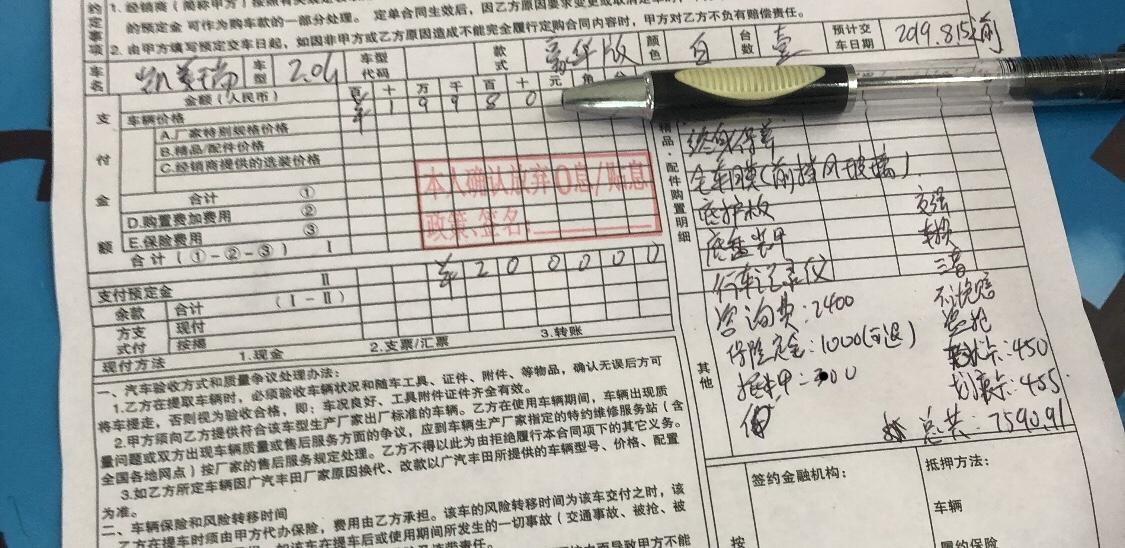 约定事项
1. 经销商（简称甲方）按照
的预定金 可作为购车款的一部分处理。 定单合同生效后，因乙方原因要求变更或取消定
2. 由甲方填写预定交车日起，如因非甲方或乙方原因造成不能完全履行定购合同内容时，甲方对乙方不负有赔偿责任。
车名 凯美瑞 车型 2.0G 车型代码 款式 豪华版 颜色 白 台数 壹 预计交车日期 2019.8.15前
支付金额
金额（人民币） 百 十 万 千 百 十 元 角
车辆价格 ¥ 1 9 9 8 0
A.厂家特别规格价格
B.精品/配件价格
C.经销商提供的选装价格
合计 ①
D.购置费加费用 ②
E.保险费用 ③
合计（①－②－③） Ⅰ
本人确认放弃0息/贴息
政策、签名:
支付预定金 Ⅱ ¥ 2 0 0 0 0 0
余款 合计 （Ⅰ－Ⅱ）
方支式付 现付
按揭
现付方法 1.现金 2.支票/汇票 3.转账
一、汽车验收方式和质量争议处理办法：
1.乙方在提取车辆时，必须验收车辆状况和随车工具、证件、附件、等物品，确认无误后方可
将车提走，否则视为验收合格，即：车况良好、工具附件证件齐全有效。
2.甲方须向乙方提供符合该车型生产厂家出厂标准的车辆。乙方在使用车辆期间，车辆出现质
量问题或双方出现车辆质量或售后服务方面的争议，应到车辆生产厂家指定的特约维修服务站（含
全国各地网点）按厂家的售后服务规定处理。乙方不得以此为由拒绝履行本合同项下的其它义务。
3.如乙方所定车辆因广汽丰田厂家原因换代、改款以广汽丰田所提供的车辆型号、价格、配置
为准。
二、车辆保险和风险转移时间
乙方在提车时须由甲方代办保险，费用由乙方承担。该车的风险转移时间为该车交付之时，该
车在提车后或使用期间所发生的一切事故（交通事故、被抢、被
精品·配件购置明细
终身保养
全车贴膜(前挡风玻璃)
底护板 交强
底盘装甲 车损
行车记录仪 三者
其他
咨询费：2400 不计免赔
保险定金：1000(可退) 盗抢
450
划痕：485
总共：7590.91
签约金融机构：
抵押方法：
车辆
履约保险
按